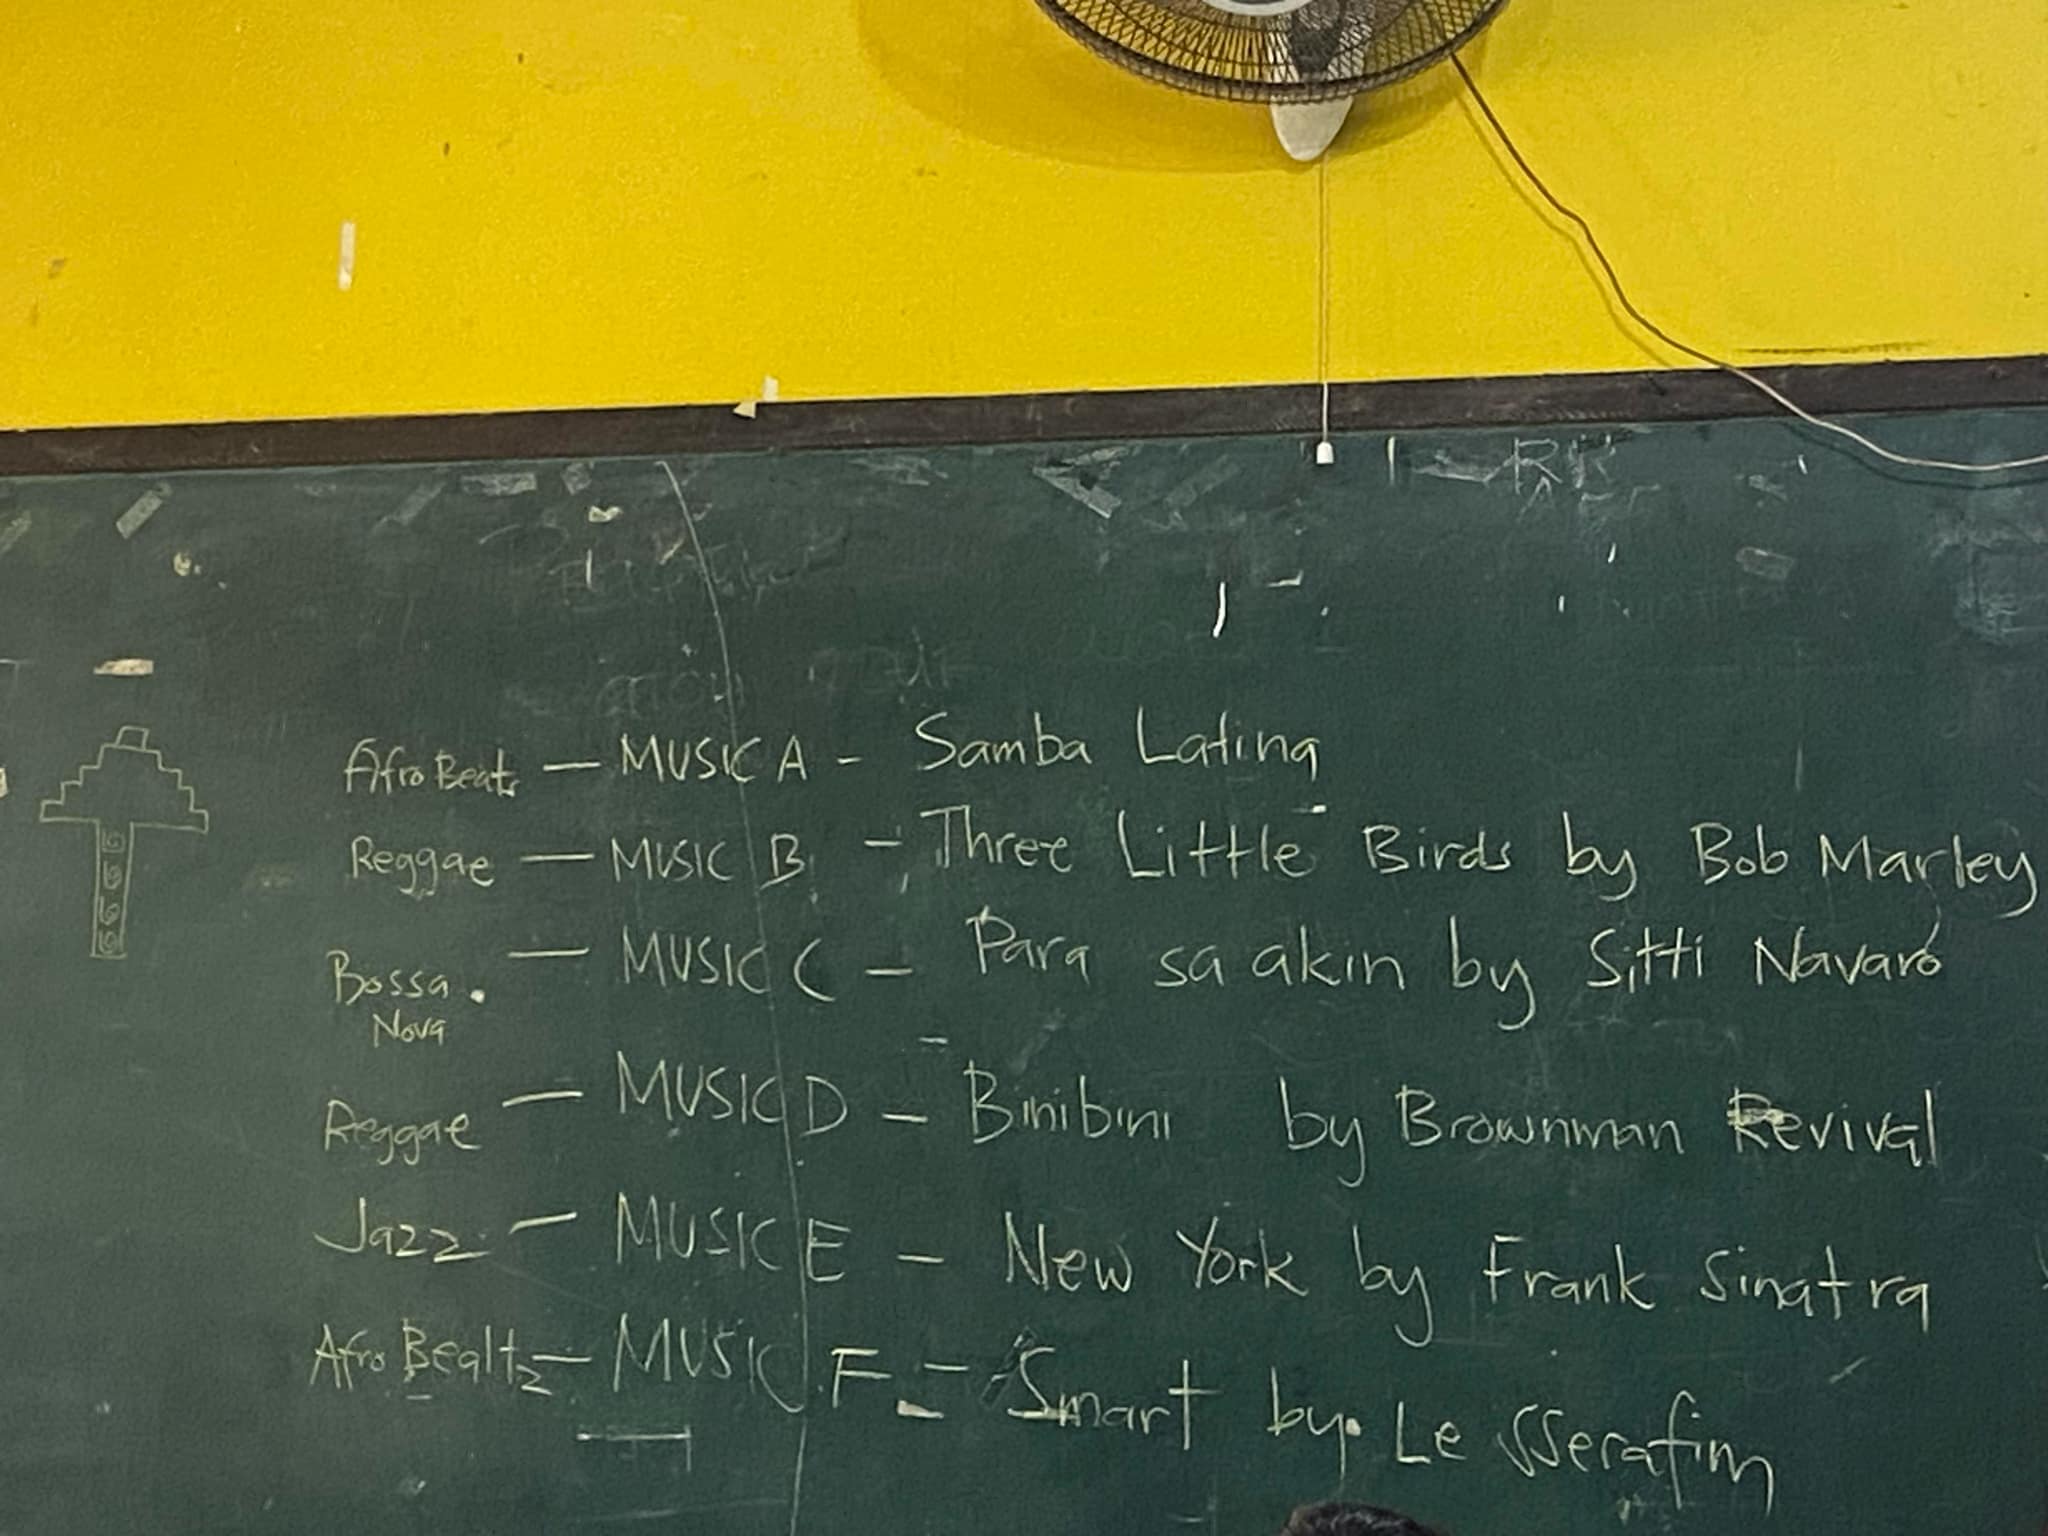 RR
Afro Beats — MUSIC A - Samba Latina
Reggae — MUSIC B - Three Little Birds by Bob Marley
Bossa Nova — MUSIC C - Para sa akin by Sitti Navaro
Reggae — MUSIC D - Binibini by Brownman Revival
Jazz — MUSIC E - New York by Frank Sinatra
Afro Bealtz — MUSIC F - Smart by Le SSerafim